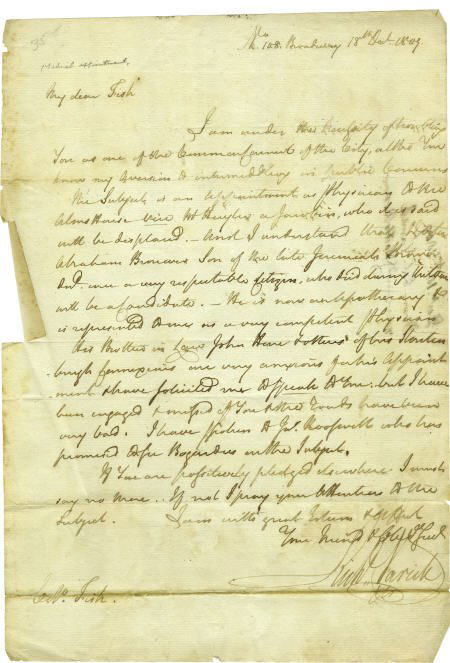 35
No. 108. Broadway 18th Dec 1809
Medical appointment,
My dear Fish
I am under the necessity of troubling
You as one of the Common Council of the City, altho You
know my aversion to intermeddling in public Concerns
The Subject is an Appointment as Physician to the
Alms House vice a Jacobin, who it is said
will be displaced. — And I understand that Doctor
Abraham Son of the late Jeremiah
once a very respectable Citizen, who died during
will be a Candidate. — He is now an Apothecary &
is represented to me as a very competent Physician
His Brother in Law John & others of his
are very anxious for his Appoint
ment & have solicited me to speak to You: but I have
been engaged & missed of You & the Roads have been
very bad. I have spoken to Js. Roosevelt who has
promised to see Bogardus on the Subject.
If You are positively pledged elsewhere I must
say no more.. If not I pray your Attention to the
Subject. I am with great Esteem & respect
Your Friend &
Richd. Varick
Colo. Fish.